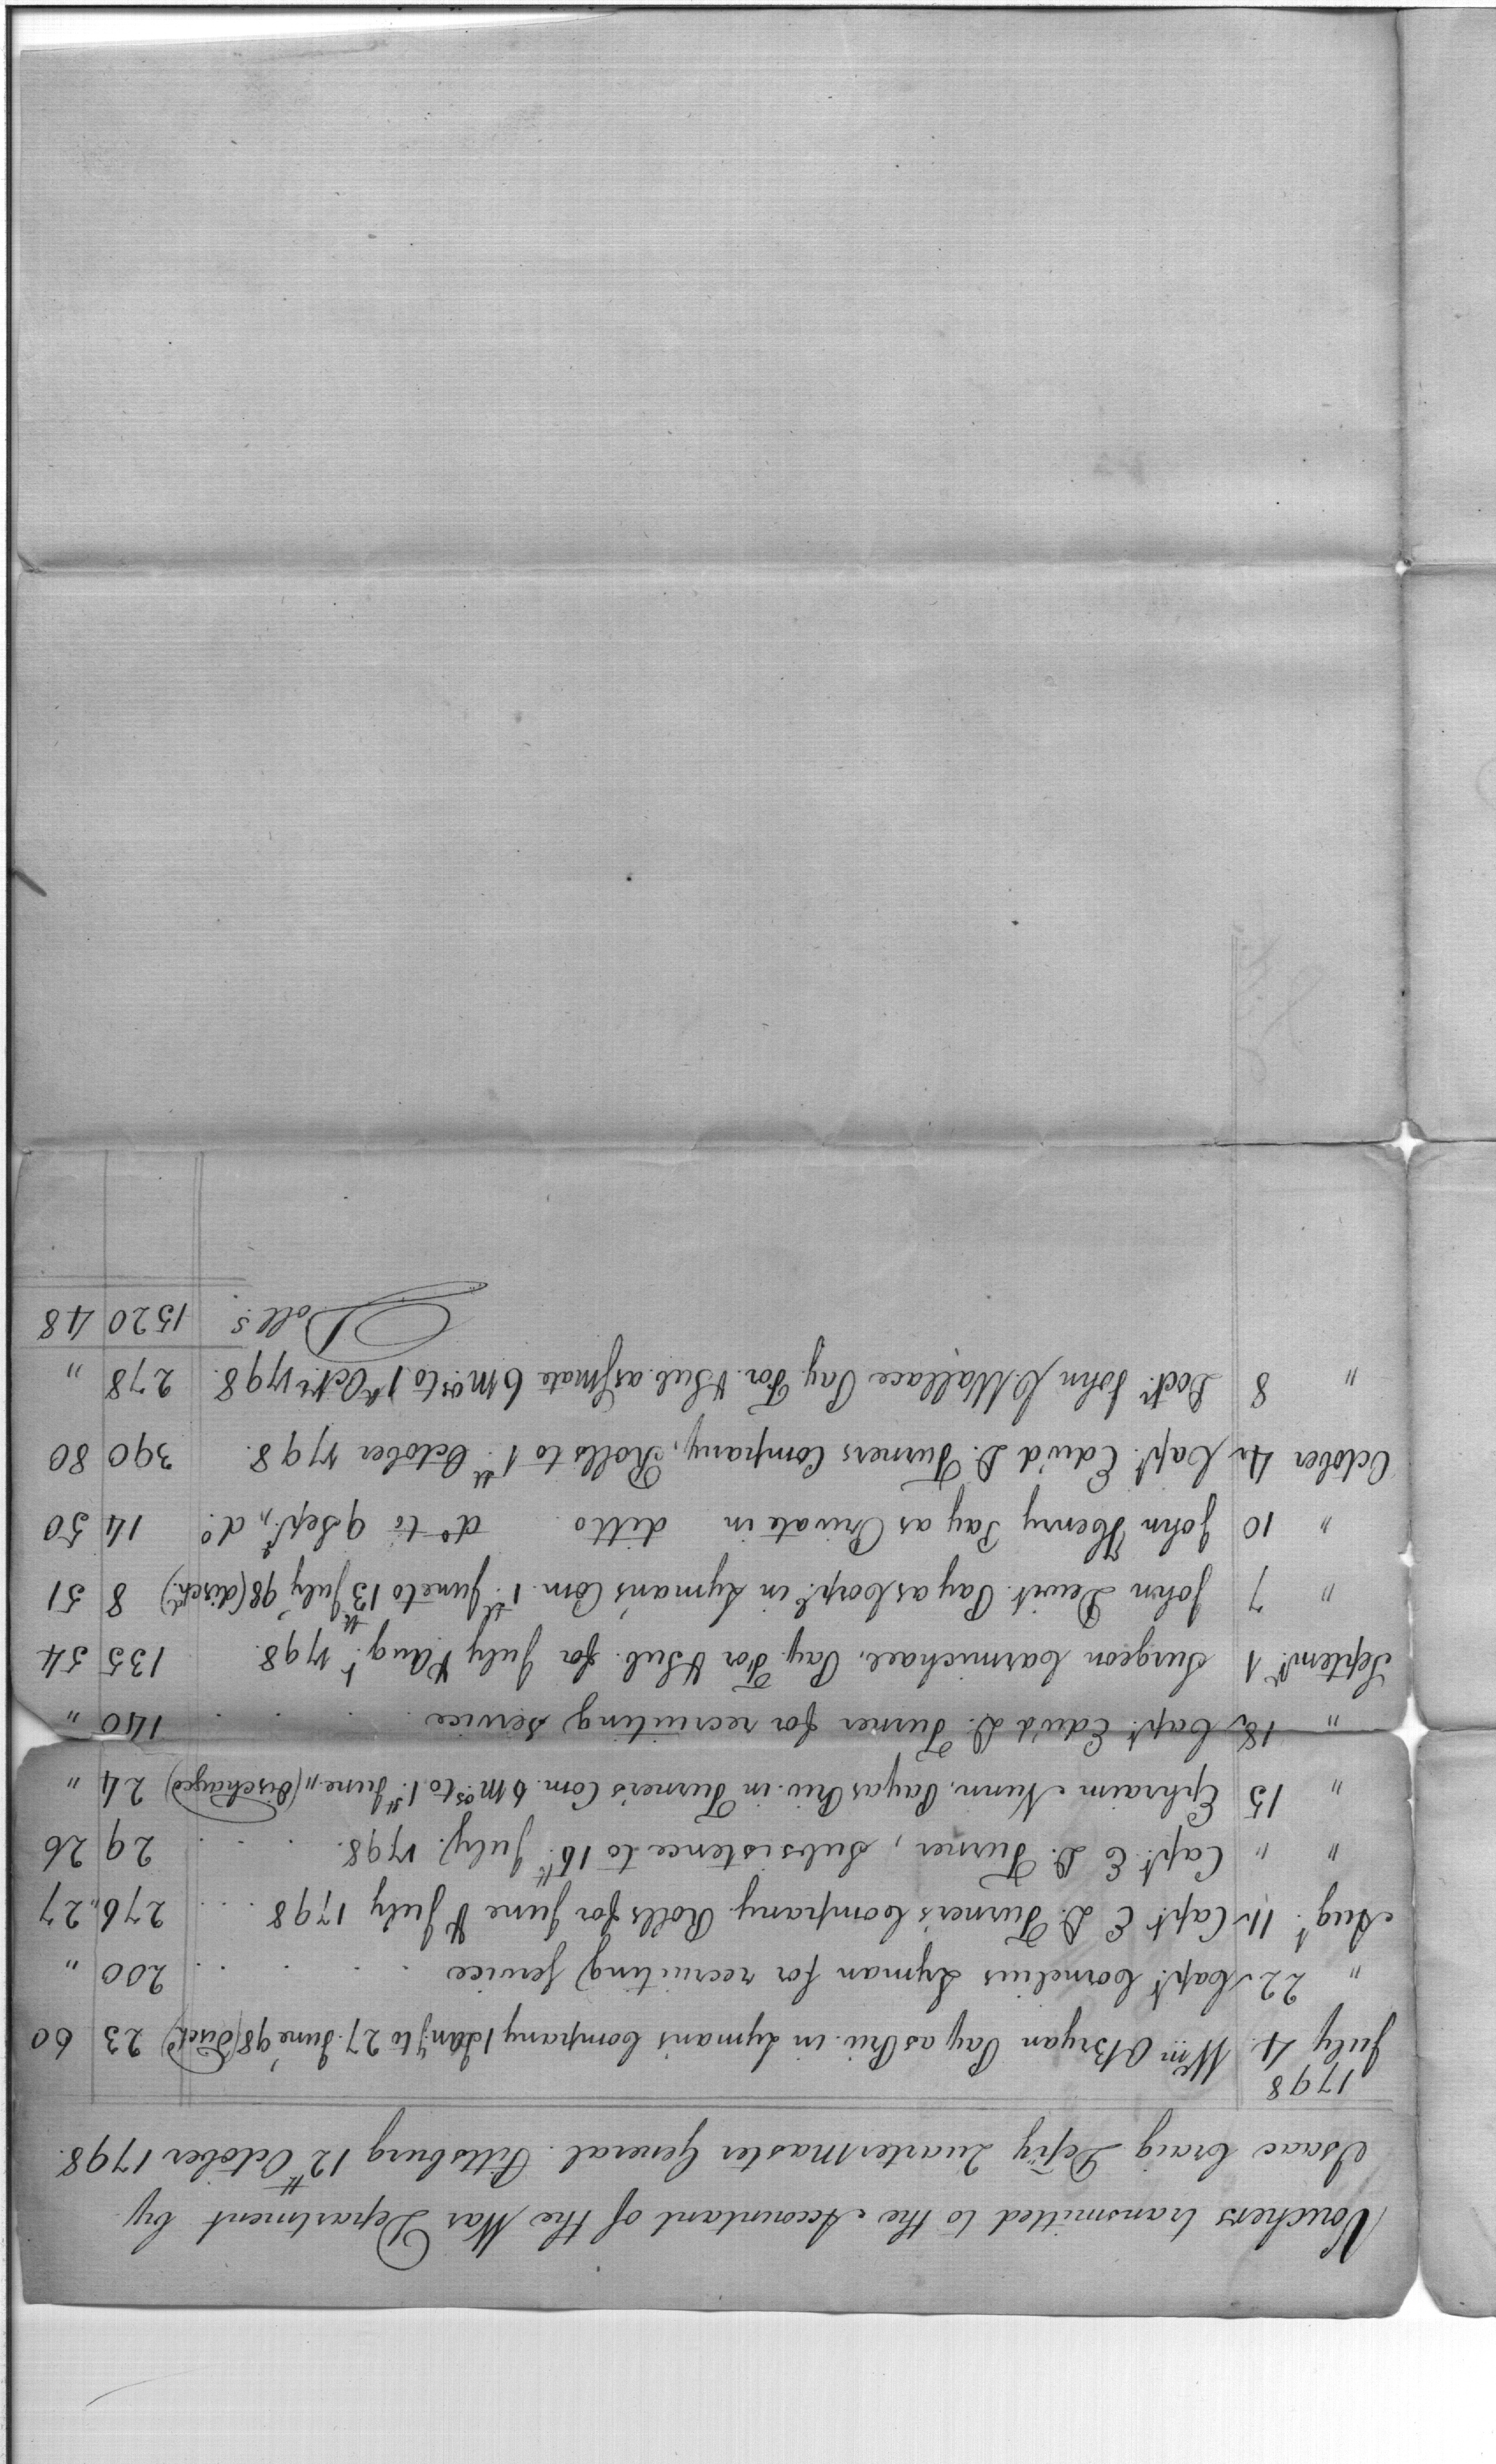 Vouchers transmitted to the Accountant of the War Department by
Isaac Craig Depty Quarter Master General. Pittsburg 12th October 1798.
1798
July 4. Wm. OBryan Pay as Priv. in Lyman's Company 1 Jany. to 27 June '98 (Disch'd) 23 60
" 22 Capt. Cornelius Lyman for recruiting service . . . . 200 "
Augt. 11 Capt. E D. Turner's Company Rolls for June & July 1798 . . . 276 27
" " Capt. E D. Turner, Subsistence to 16th July. 1798. . . . 29 26
" 15 Ephraim Nunn, Pay as Priv. in Turner's Com. 6 mos. to 1st June " (Discharged) 24 "
" 18 Capt. Edwd D. Turner for recruiting service . . . . 140 "
Septemr. 1 Surgeon Carmichael, Pay For & Sub. for July & Augt. 1798. 135 54
" 7 John Dewit Pay as Corpl. in Lyman's Com. 1st June to 13th July '98 (disch'd) 8 51
" 10 John Henry Pay as Private in ditto do. to 9 Sept. " do. 14 50
October 4 Capt. Edwd D. Turners Company, Rolls to 1st October 1798. 390 80
" 8 Doctr. John Wallace Pay For. & Sub. as Mate 6 mos. to 1st Octr. 1798. 278 "
Dolls. 1520 48